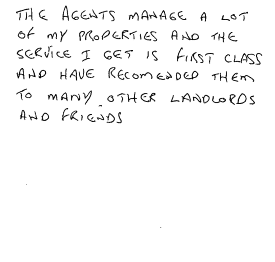 THE AGENTS MANAGE A LOT
OF MY PROPERTIES AND THE
SERVICE I GET IS FIRST CLASS
AND HAVE RECOMENDED THEM
TO MANY OTHER LANDLORDS
AND FRIENDS